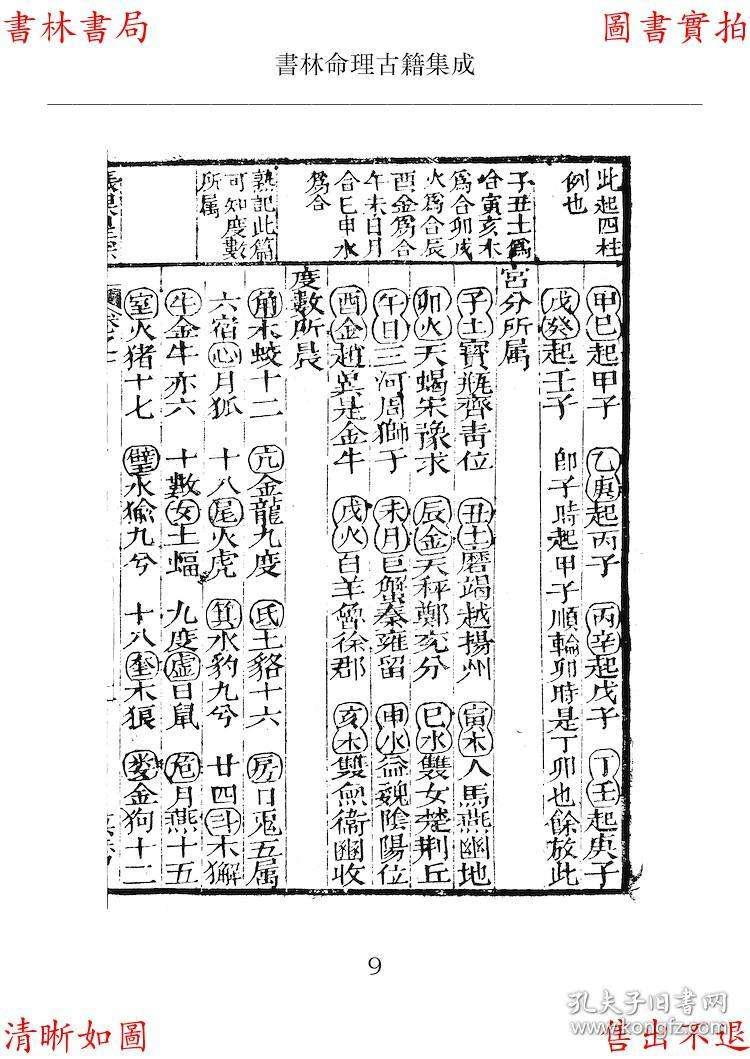 書林書局
圖書實拍
書林命理古籍集成
此起四柱
例也
子丑土爲
合寅亥木
爲合卯戌
火爲合辰
酉金爲合
午未日月
合巳申水
爲合
熟記此篇
可知度數
所属
甲巳起甲子 乙庚起丙子 丙辛起戊子 丁壬起庚子
戊癸起壬子 郎子時起甲子順輪卯時是丁卯也餘放此
宮分所属
子土寶瓶齊青位 丑土磨竭越揚州 寅木人馬燕幽地
卯火天蝎宋豫求 辰金天秤鄭兖分 巳水雙女楚荆丘
午日三河周獅子 未月巨蟹秦雍留 申水益魏陰陽位
酉金趙冀是金牛 戌火白羊魯徐郡 亥木雙魚衞幽收
度數所晨
角木蛟十二 亢金龍九度 氐土貉十六 房日兎五属
六宿心月狐 十八尾火虎 箕水豹九兮 廿四斗木獬
牛金牛亦六 十數女土蝠 九度虛日鼠 危月燕十五
室火猪十七 壁水㺄九兮 十八奎木狼 婁金狗十二
9
清晰如圖
孔夫子旧書网
售出不退